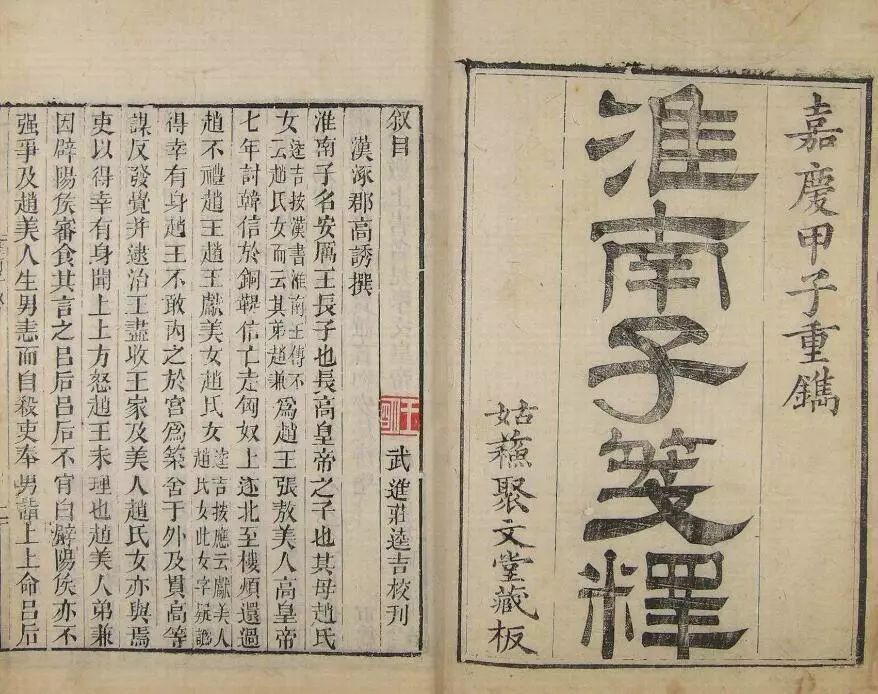 嘉慶甲子重鐫
淮南子箋釋
姑蘓聚文堂藏板
叙目
漢涿郡高誘撰 武進莊逵吉校刊
淮南子名安厲王長子也長高皇帝之子也其母趙氏
女逵吉按漢書淮南王傳不云趙氏女而云其弟趙兼爲趙王張敖美人高皇帝
七年討韓信於銅鞮信亡走匈奴上遂北至樓煩還過
趙不禮趙王趙王獻美女趙氏女逵吉按應云獻美人趙氏女此女字疑譌
得幸有身趙王不敢内之於宫爲築舍于外及貫高等
謀反發覺并逮治王盡收王家及美人趙氏女亦與焉
吏以得幸有身聞上上方怒趙王未理也趙美人弟兼
因辟陽侯審食其言之吕后吕后不肯白辟陽侯亦不
强爭及趙美人生男恚而自殺吏奉男詣上上命吕后